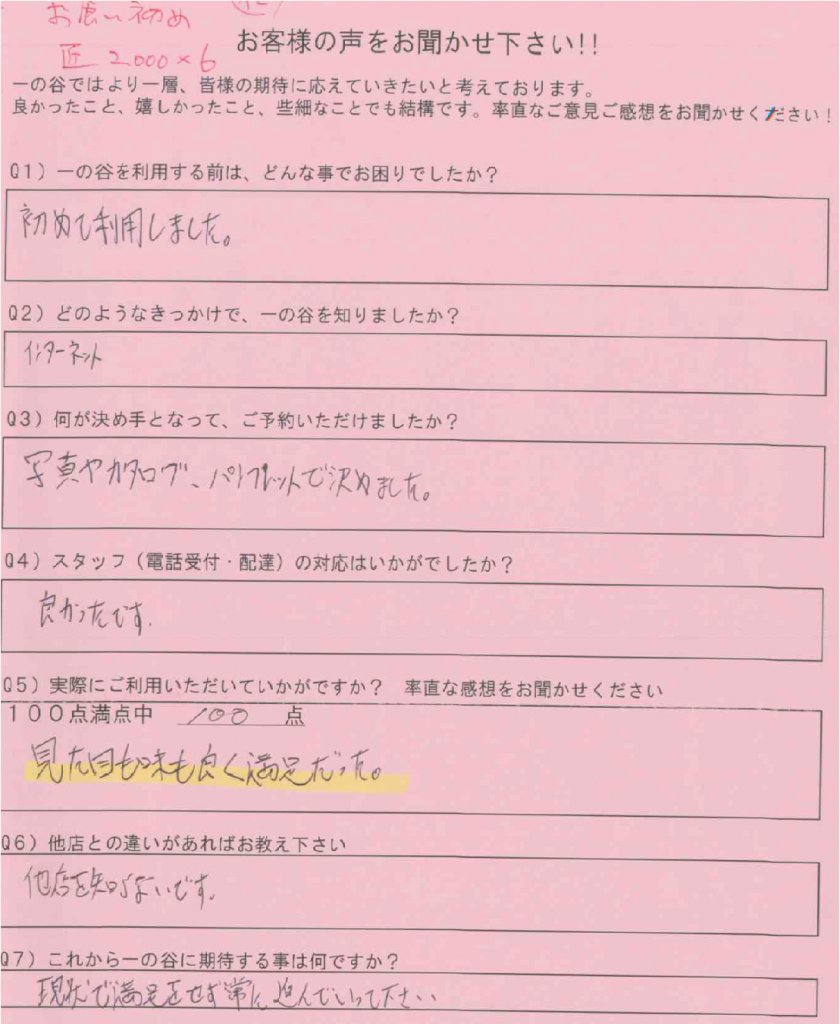 お食い初め
匠 2,000×6
お客様の声をお聞かせ下さい!!
一の谷ではより一層、皆様の期待に応えていきたいと考えております。
良かったこと、嬉しかったこと、些細なことでも結構です。率直なご意見ご感想をお聞かせください！
Q1）一の谷を利用する前は、どんな事でお困りでしたか？
初めて利用しました。
Q2）どのようなきっかけで、一の谷を知りましたか？
インターネット
Q3）何が決め手となって、ご予約いただけましたか？
写真やカタログ、パンフレットで決めました。
Q4）スタッフ（電話受付・配達）の対応はいかがでしたか？
良かったです.
Q5）実際にご利用いただいていかがですか？ 率直な感想をお聞かせください
100点満点中 100 点
見た目も味も良く満足だった。
Q6）他店との違いがあればお教え下さい
他店を知らないです.
Q7）これから一の谷に期待する事は何ですか？
現状で満足をせず常に進んでいって下さい